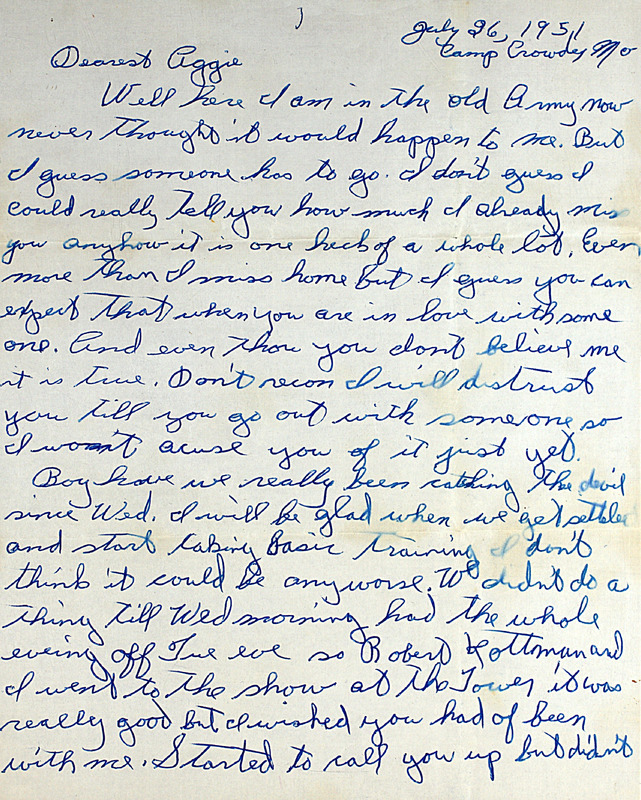 July 26, 1951
Camp Crowder Mo
Dearest Aggie
Well here I am in the old Army now
never thought it would happen to me. But
I guess someone has to go. I don't guess I
could really tell you how much I already miss
you anyhow it is one heck of a whole lot. Even
more than I miss home but I guess you can
expect that when you are in love with some
one. And even thou you don't believe me
it is true. Don't recon I will distrust
you till you go out with someone so
I won't acuse you of it just yet.
Boy have we really been catching the devil
since Wed. I will be glad when we get settled
and start taking Basic training I don't
think it could be any worse. We didn't do a
thing till Wed morning had the whole
eveing off Tue eve so Robert and
I went to the show at the Tower it was
really good but I wished you had of been
with me. Started to call you up but didn't